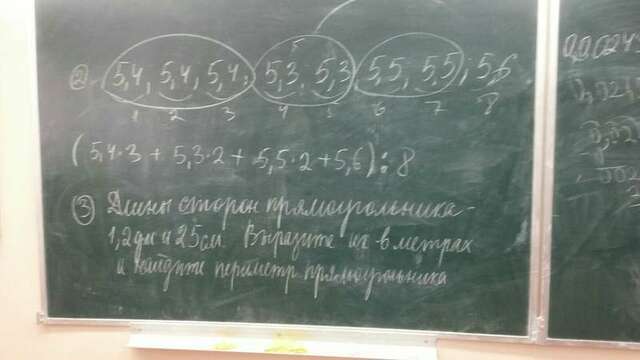 ② 5,4, 5,4, 5,4, 5,3, 5,3, 5,5, 5,5, 5,6
1 2 3 4 5 6 7 8
(5,4·3 + 5,3·2 + 5,5·2 + 5,6) : 8
③ Длины сторон прямоугольника -
1,2дм и 25см. Выразите их в метрах
и найдите периметр прямоугольника